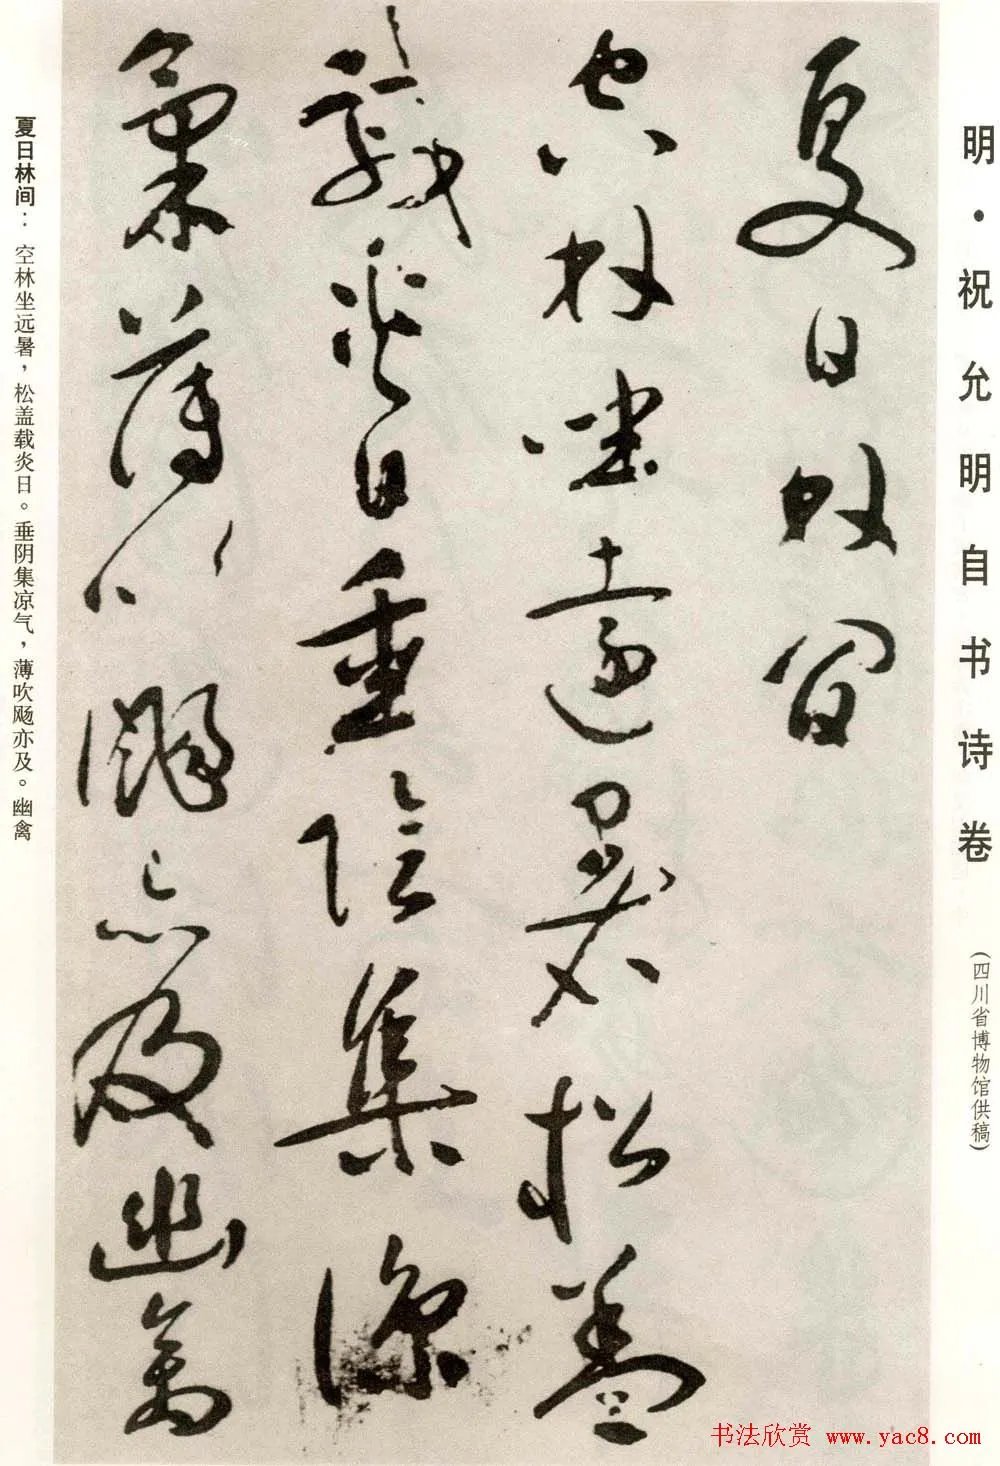 明·祝允明自书诗卷
(四川省博物馆供稿)
夏日林間
空林坐遠暑松蓋
載炎日垂陰集涼
氣薄吹颺亦及幽禽
夏日林间：空林坐远暑，松盖载炎日。垂阴集凉气，薄吹飏亦及。幽禽
书法欣赏 www.yac8.com